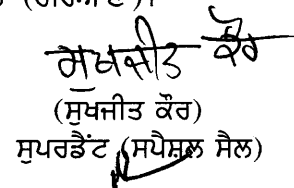 ਸੁਖਜੀਤ ਕੌਰ
(ਸੁਖਜੀਤ ਕੌਰ)
ਸੁਪਰਡੈਂਟ (ਸਪੈਸ਼ਲ ਸੈਲ)